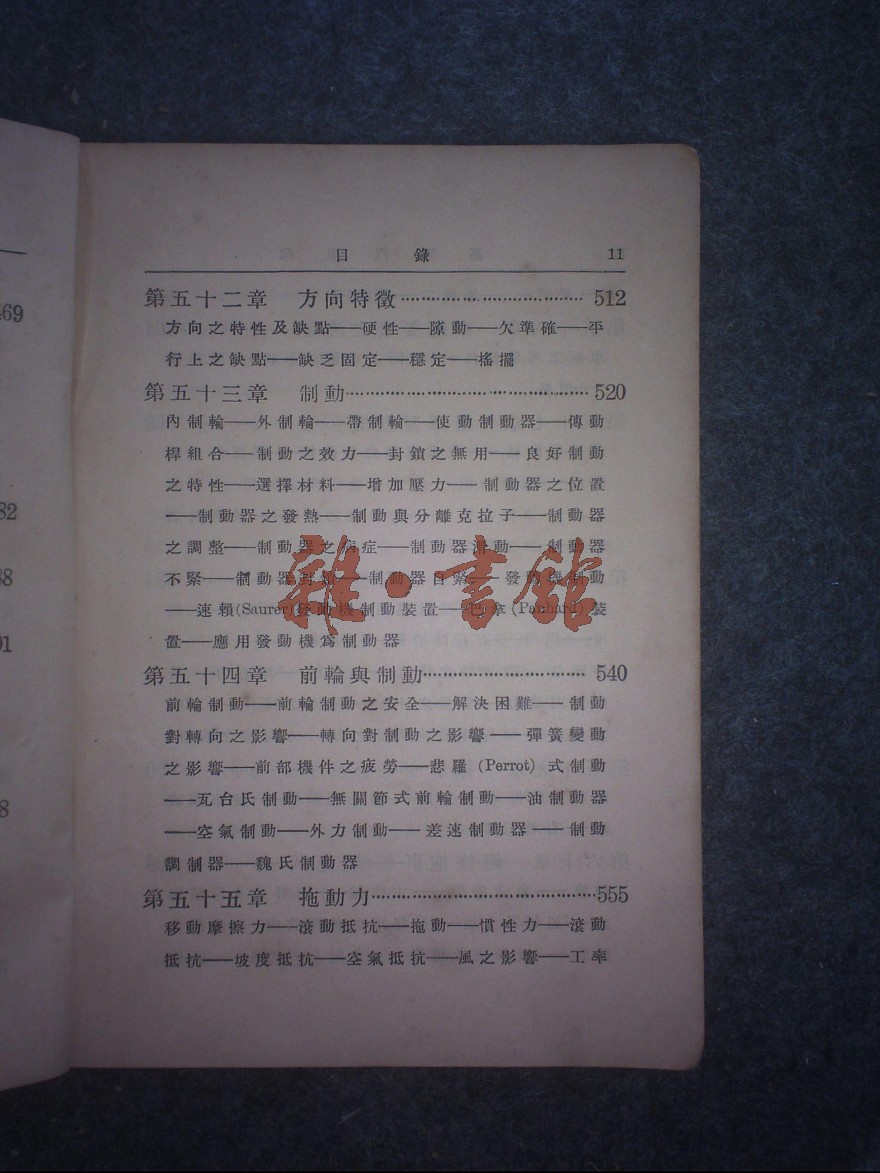 469
82
38
91
8
目錄 11
第五十二章 方向特徵 512
方向之特性及缺點——硬性——隙動——欠準確——平
行上之缺點——缺乏固定——穩定——搖擺
第五十三章 制動 520
內制輪——外制輪——帶制輪——使動制動器——傳動
桿組合——制動之效力——封鎖之無用——良好制動
之特性——選擇材料——增加壓力——制動器之位置
——制動器之發熱——制動與分離克拉子——制動器
之調整——制動器之病症——制動器滑動——制動器
不緊——制動器封鎖——制動器自緊——發動機制動
——速賴(Saurer)發動機制動裝置——(Panhard)裝
置——應用發動機爲制動器
第五十四章 前輪與制動 540
前輪制動——前輪制動之安全——解決困難——制動
對轉向之影響——轉向對制動之影響——彈簧變動
之影響——前部機件之疲勞——悲羅(Perrot)式制動
——瓦台氏制動——無關節式前輪制動——油制動器
——空氣制動——外力制動——差速制動器——制動
調制器——魏氏制動器
第五十五章 拖動力 555
移動摩擦力——滾動抵抗——拖動——慣性力——滾動
抵抗——坡度抵抗——空氣抵抗——風之影響——工率
雜·書館